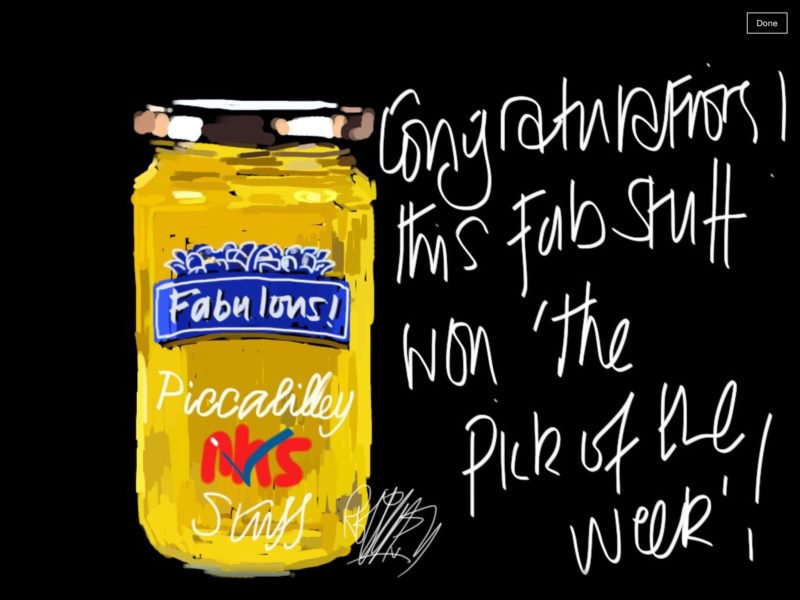 Done
Congratulations!
this Fab Stuff
won 'the
Pick of the
week'!
Fabulous!
Piccalilley
NHS
Stuff